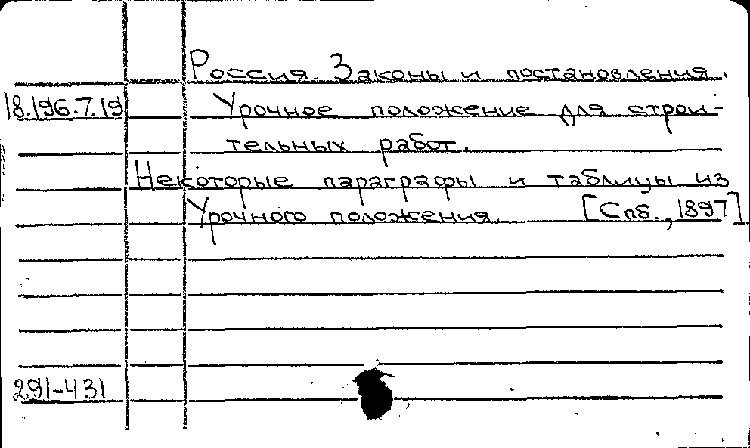 Россия. Законы и постановления.
18.196.7.19 Урочное положение для строи-
тельных работ.
Некоторые параграфы и таблицы из
Урочного положения. [Спб., 1897]
291-431